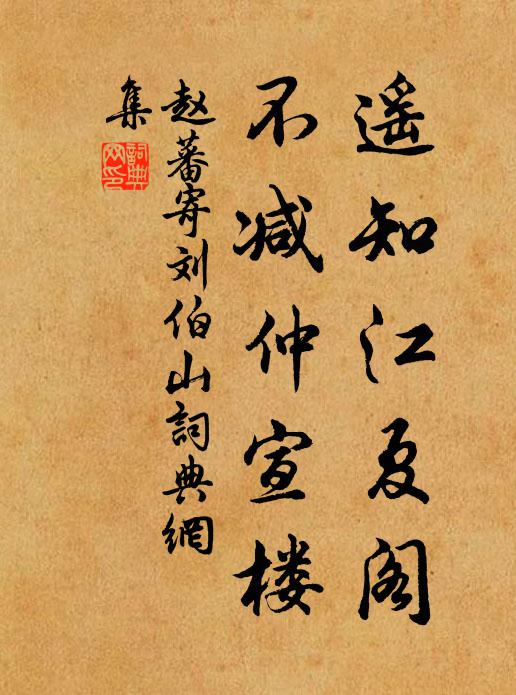 遥知江夏阁
不减仲宣楼
赵蕃寄刘伯山詞典網
集
詞典网印